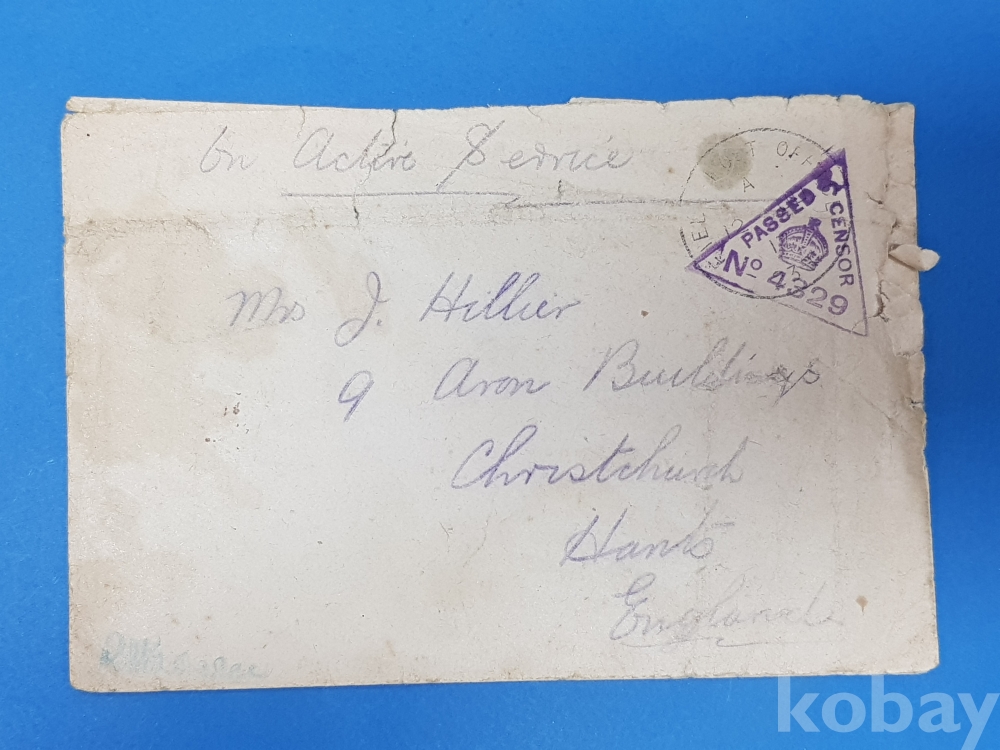 On Active Service
FIEL POST OFF
A
PASSED BY CENSOR
No 4329
Mrs J. Hillier
9 Avon Buildings
Christchurch
Hants
England
kobay